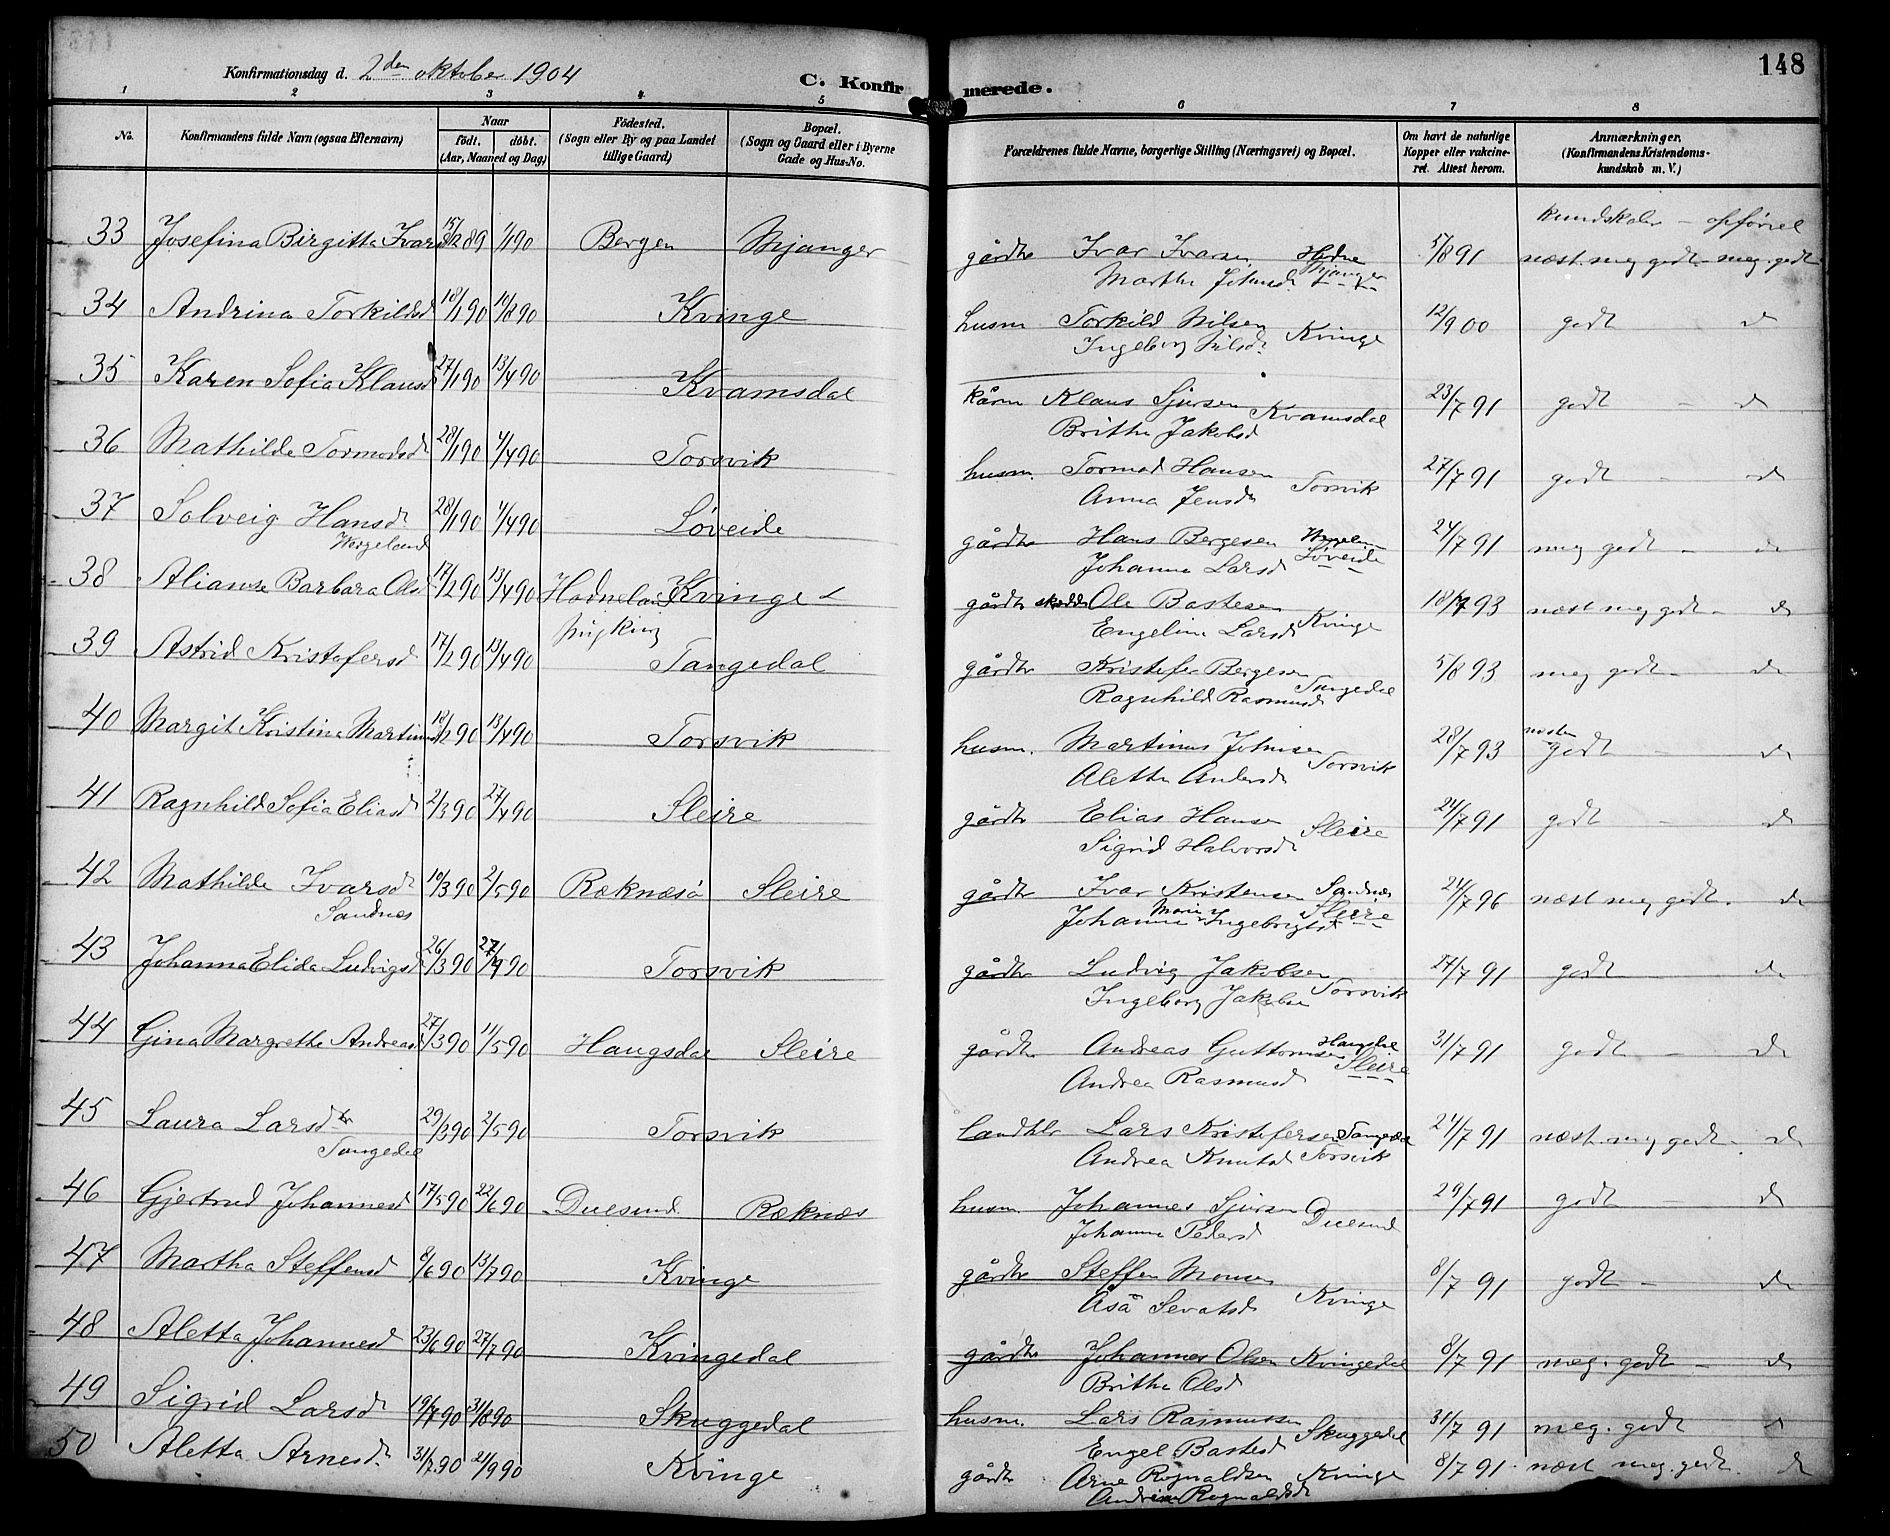 148
Konfirmationsdag d. 2den oktober 1904
C. Konfirmerede.
1 2 3 4 5 6 7 8
No. Konfirmandens fulde Navn (ogsaa Efternavn) Naar født. døbt. (Aar, Maaned og Dag) Fødested. (Sogn eller By og paa Landet tillige Gaard) Bopæl. (Sogn og Gaard eller i Byerne Gade og Hus-No. Forældrenes fulde Navne, borgerlige Stilling (Næringsvei) og Bopæl. Om havt de naturlige Kopper eller vakcineret. Attest herom. Anmærkninger. (Konfirmandens Kristendomskundskab m. V.)
kundskaber - opførsel
33 Josefina Birgitta Ivarsd 15/12 89 1/1 90 Bergen Mjanger gårdbr Ivar Ivarsen 5/8 91 næst. meg godt - meg. godt
Martha Johnsd. Mjanger
34 Andrina Torkildsd 18/1 90 10/8 90 Kvinge husm Torkild Nilsen Kvinge 12/9 00 godt d
Ingeborg Nilsd.
35 Karen Sofia Klausd 27/1 90 13/4 90 Kvamsdal kårm Klaus Sjursen Kvamsdal 23/7 91 godt - d
Brithe Jakobsd
36 Mathilde Tormodsd 28/1 90 4/4 90 Torsvik husm. Tormod Hansen Torsvik 27/7 91 godt - d
Anna Jensd
37 Solveig Hansd 28/1 90 4/4 90 Løveide gårdbr Hans Bergesen Løveide 24/7 91 meg godt - d
Wergeland Johanne Larsd
38 Alianse Barbara Olsd 17/2 90 13/4 90 Kvinge gårdbr Ole Bastesen Kvinge 18/7 93 næst meg godt - d
Engeline Larsd
39 Astrid Kristofersd 17/2 90 13/4 90 Tangedal gårdbr Kristofer Bergesen Tangedal 5/8 93 meg godt - d
Ragnhild Rasmusd
40 Margit Kristina Martinusd 18/2 90 13/4 90 Torsvik husm. Martinus Johnsen Torsvik 28/7 93 næsten godt - d
Aletta Andersd
41 Ragnhild Sofia Eliasd 2/3 90 27/4 90 Sleire gårdbr Elias Hansen Sleire 24/7 91 godt - d
Sigrid Halvorsd
42 Mathilde Ivarsd 10/3 90 2/5 90 Ræknæsø Sleire gårdbr Ivar Kristensen Sandnæs 24/7 96 næst meg godt. d
Sandnæs Johanne Marie Ingebrigtsd Sleire
43 Johanna Elida Ludvigsd 26/3 90 27/4 90 Torsvik gårdbr Ludvig Jakobsen Torsvik 27/7 91 godt - d
Ingeborg Jakobsd
44 Gina Margrethe Andreasd 27/3 90 11/5 90 Haugsdal Sleire gårdbr Andreas Guttormsen Haugsdal 31/7 91 godt - d
Andrea Rasmusd Sleire
45 Laura Larsdtr 29/3 90 2/5 90 Torsvik landhdl Lars Kristofersen Tangedal 24/7 91 næst meg godt - d
Tangedal Andrea Knutsd Torsvik
46 Gjertrud Johannesd 17/5 90 22/6 90 Duesund Ræknæs husm Johannes Sjursen Duesund 29/7 91 godt - d
Johanne Pedersd
47 Martha Steffensd 8/6 90 13/7 90 Kvinge gårdbr Steffen Monsen Kvinge 8/7 91 godt - d
Åså Sevatsd
48 Aletta Johannesd 23/6 90 27/7 90 Kvingedal gårdbr Johannes Olsen Kvingedal 8/7 91 meg. godt - d
Brithe Olsd
49 Sigrid Larsd 19/7 90 31/8 90 Skuggedal husm. Lars Rasmussen Skuggedal 31/7 91 meg. godt d
Engel Bastesd
50 Aletta Arnesd. 31/7 90 21/9 90 Kvinge gårdbr Arne Rognaldsen Kvinge 8/7 91. næst meg. godt. d
Andrine Rognaldsd